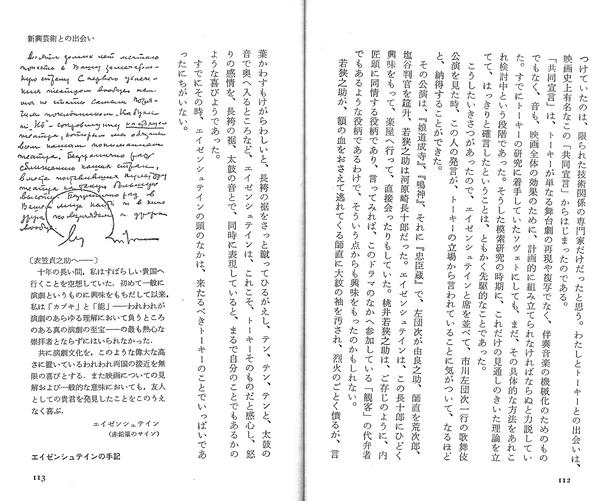 つけていたのは、限られた技術関係の専門家だけだったと思う。わたしとトーキーとの出会いは、
映画史上有名なこの「共同宣言」からはじまったのである。
「共同宣言」は、トーキーが単なる舞台劇の再現や複写でなく、伴奏音楽の機械化のためのもの
でもなく、音も、映画全体の効果のために、計画的に組み立てられなければならぬと力説してい
た。すでにトーキーの研究に着手していたソヴェトにしても、まだ、その具体的な方法をあれこ
れ検討中という段階であった。そうした模索研究の時期に、これだけの見通しのきいた理論を立
てて、はっきりと確言したということは、ともかく先駆的なことであった。
こうしたいきさつがあったので、エイゼンシュテインと席を並べて、市川左団次一行の歌舞伎
公演を見た時、この人の発言が、トーキーの立場から言われていることに気がついて、なるほど
と、納得することができた。
その公演は、『娘道成寺』、『鳴神』、それに『忠臣蔵』で、左団次が由良之助、師直を荒次郎、
塩谷判官を莚升、若狭之助は河原崎長十郎だった。エイゼンシュテインは、この長十郎にひどく
興味をもって、楽屋へ行って、直接会ったりもしていた。桃井若狭之助は、ご存じのように、内
匠頭に同情する役柄であり、言ってみれば、このドラマのなかへ参加している「観客」の代弁者
でもあるような役柄であるわけで、そういう点からも興味をもったのかもしれない。
若狭之助が、額の血をおさえて逃れてくる師直に大紋の袖を汚され、烈火のごとく憤るが、言
112
新興芸術との出会い
葉かわすもけがらわしいと、長袴の裾をさっと蹴ってひるがえし、テン、テン、テンと、太鼓の
音で奥へ入るところなど、エイゼンシュテインは、これこそ、トーキーそのものだと感心し、怒
りの感情を、長袴の裾、太鼓の音とで、同時に表現していると、まるで自分のことでもあるかの
ような喜びようであった。
すでにその時、エイゼンシュテインの頭のなかは、来たるべきトーキーのことでいっぱいであ
ったにちがいない。
〔衣笠貞之助へ——〕
十年の長い間、私はすばらしい貴国へ
行くことを空想していた。初めて一般に
演劇というものに興味をもちだして以来、
私は「カブキ」と「能」——われわれが
演劇のあらゆる理解において負うところ
のある真の演劇の至宝——の最も熱心な
崇拝者とならずにはいられなかった。
共に演劇文化を、このような偉大な高
さに置いているわれわれ両国の接近を無
限の喜びとする。また映画についての見
解および一般的な意味においても、友人
としての貴君を発見したことをこのうえ
なく喜ぶ。
エイゼンシュテイン
(赤鉛筆のサイン)
エイゼンシュテインの手記
113